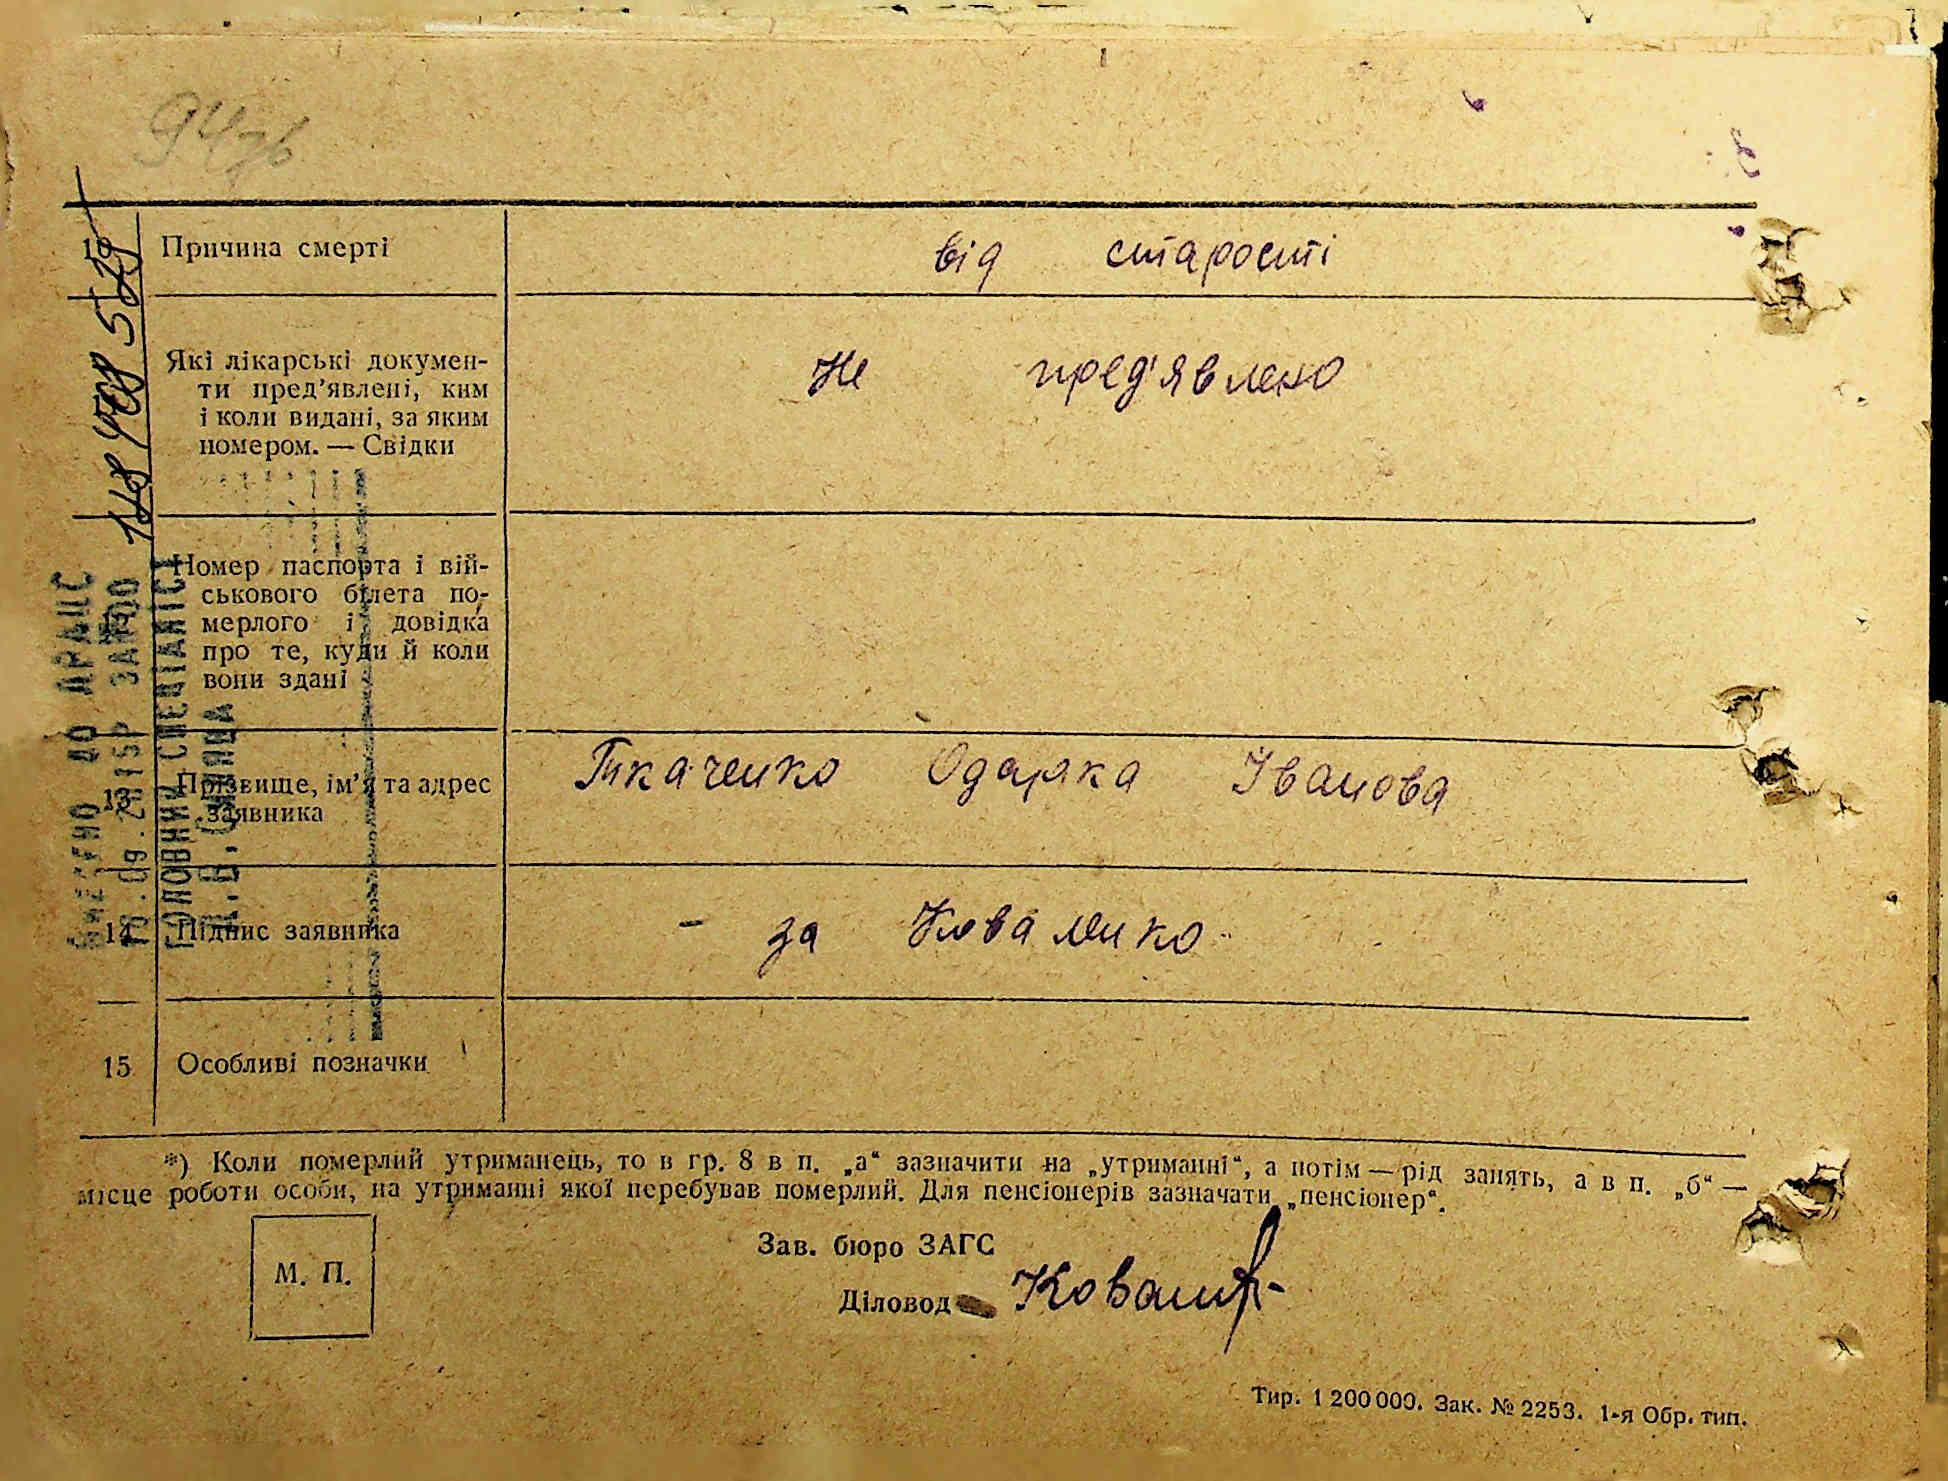 94зв
Причина смерті
від старості
Які лікарські докумен-
ти пред’явлені, ким
і коли видані, за яким
номером. — Свідки
Не пред'явлено
Номер паспорта і вій-
ськового білета по-
мерлого і довідка
про те, куди й коли
вони здані
13 Прізвище, ім’я та адрес
заявника
Ткаченко Одарка Іванова
14 Підпис заявника
- за Коваленко -
15 Особливі позначки
*) Коли померлий утриманець, то в гр. 8 в п. „а“ зазначити на „утриманні“, а потім — рід занять, а в п. „б“ —
місце роботи особи, на утриманні якої перебував померлий. Для пенсіонерів зазначати „пенсіонер“.
М. П.
Зав. бюро ЗАГС
Діловод
Тир. 1 200 000. Зак. № 2253. 1-я Обр. тип.
ДО ДРАЦС
ЗАПИСР
ГОЛОВНИЙ СПЕЦІАЛІСТ